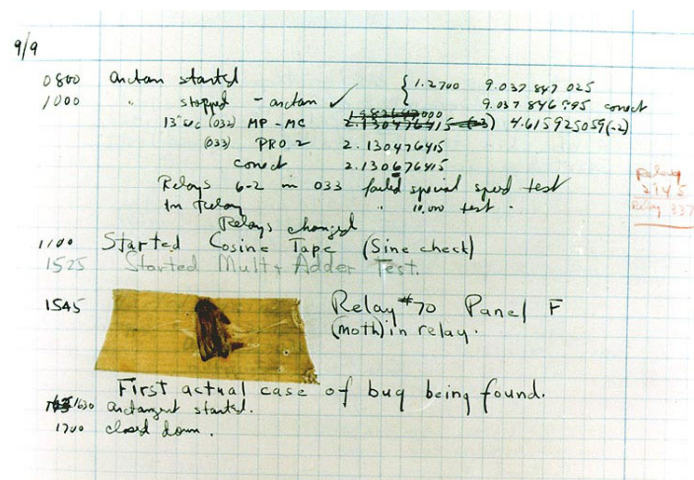 9/9
0800 arctan started { 1.2700 9.037 847 025
1000 " stopped - arctan ✓ 9.037 846 995 correct
13"sec (032) MP - MC 1.982647000 2.130476415 (-3) 4.615925059(-2)
(033) PRO 2 2.130476415
correct 2.130676415
Relays 6-2 in 033 failed special speed test
In Relay " 11,000 test.
Relay
2145
Relay 337
Relays changed
1100 Started Cosine Tape (Sine check)
1525 Started Mult + Adder Test.
1545 Relay #70 Panel F
(moth) in relay.
First actual case of bug being found.
1630 arctangent started.
1700 closed down.